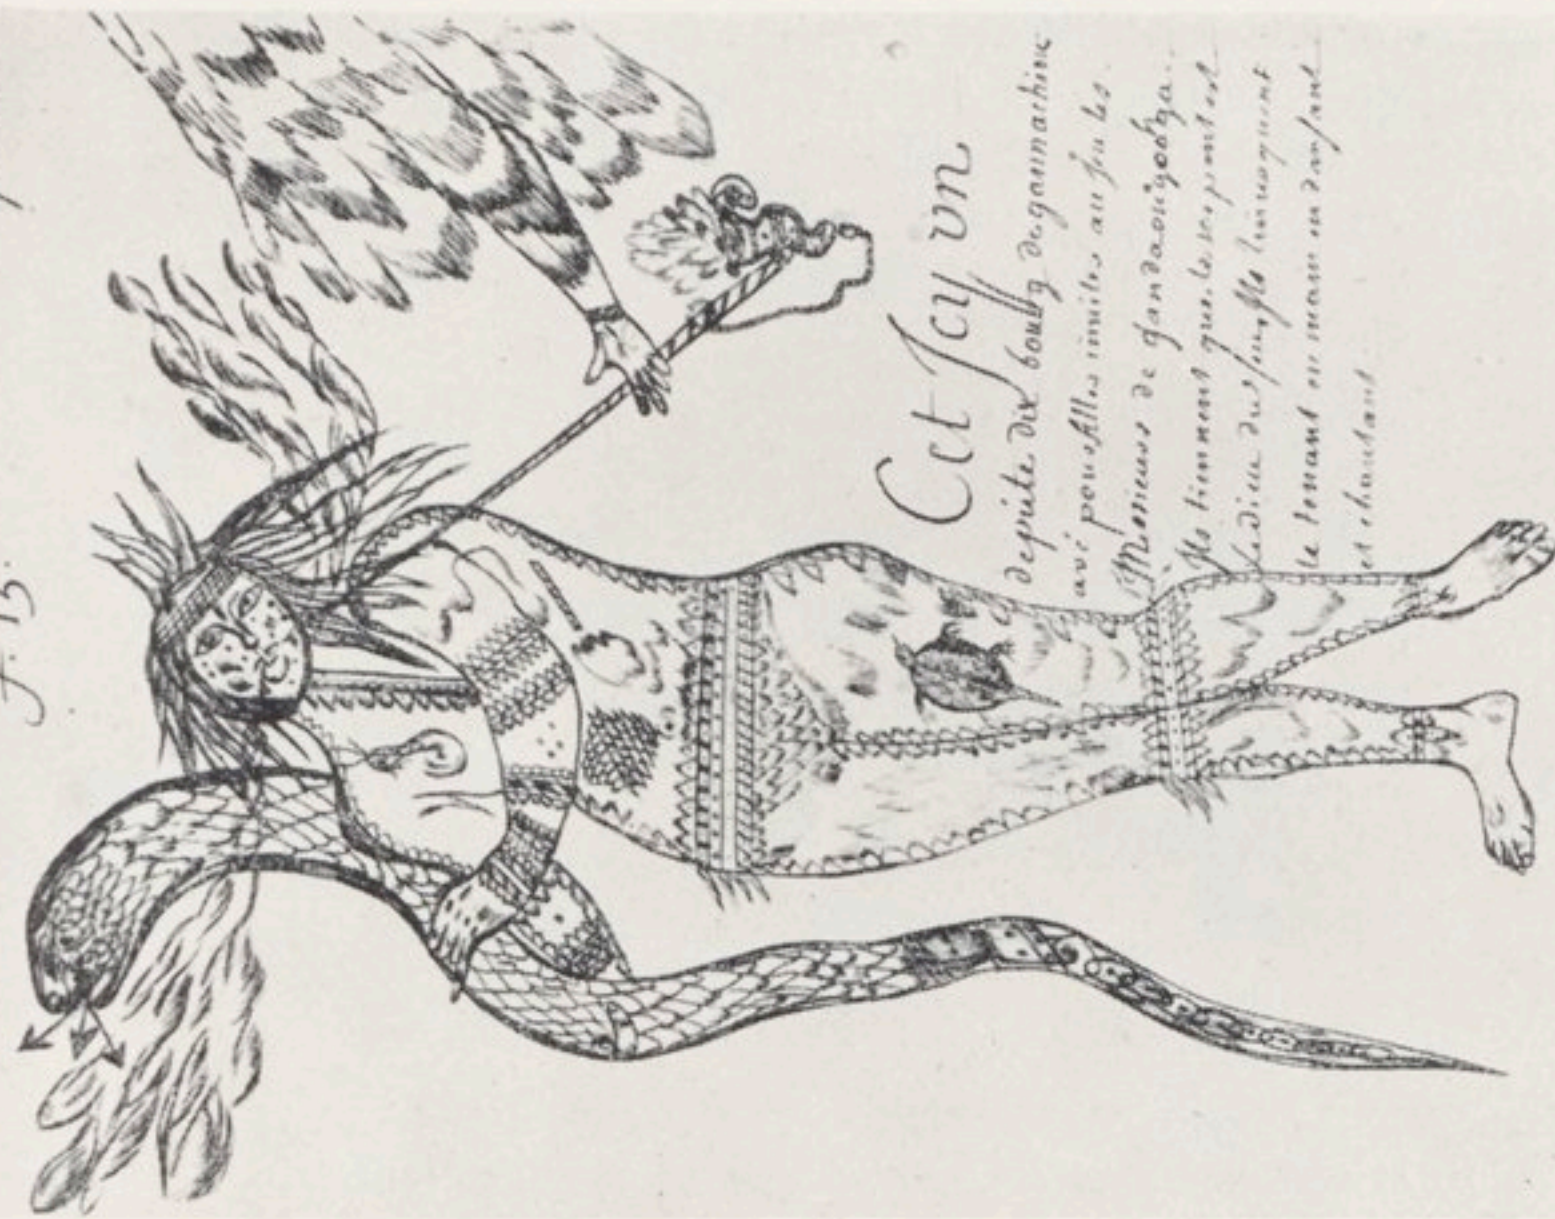 f. 15.
Cet Icy un
depute du bourg de gannachiou
aué pour aller inuiter au jeu les
Messieurs de gandaouagoahga.
Ils tiennent que le serpent est
Le dieu du feu, ils linuoquent
le tenant en main en dansant
et chantant